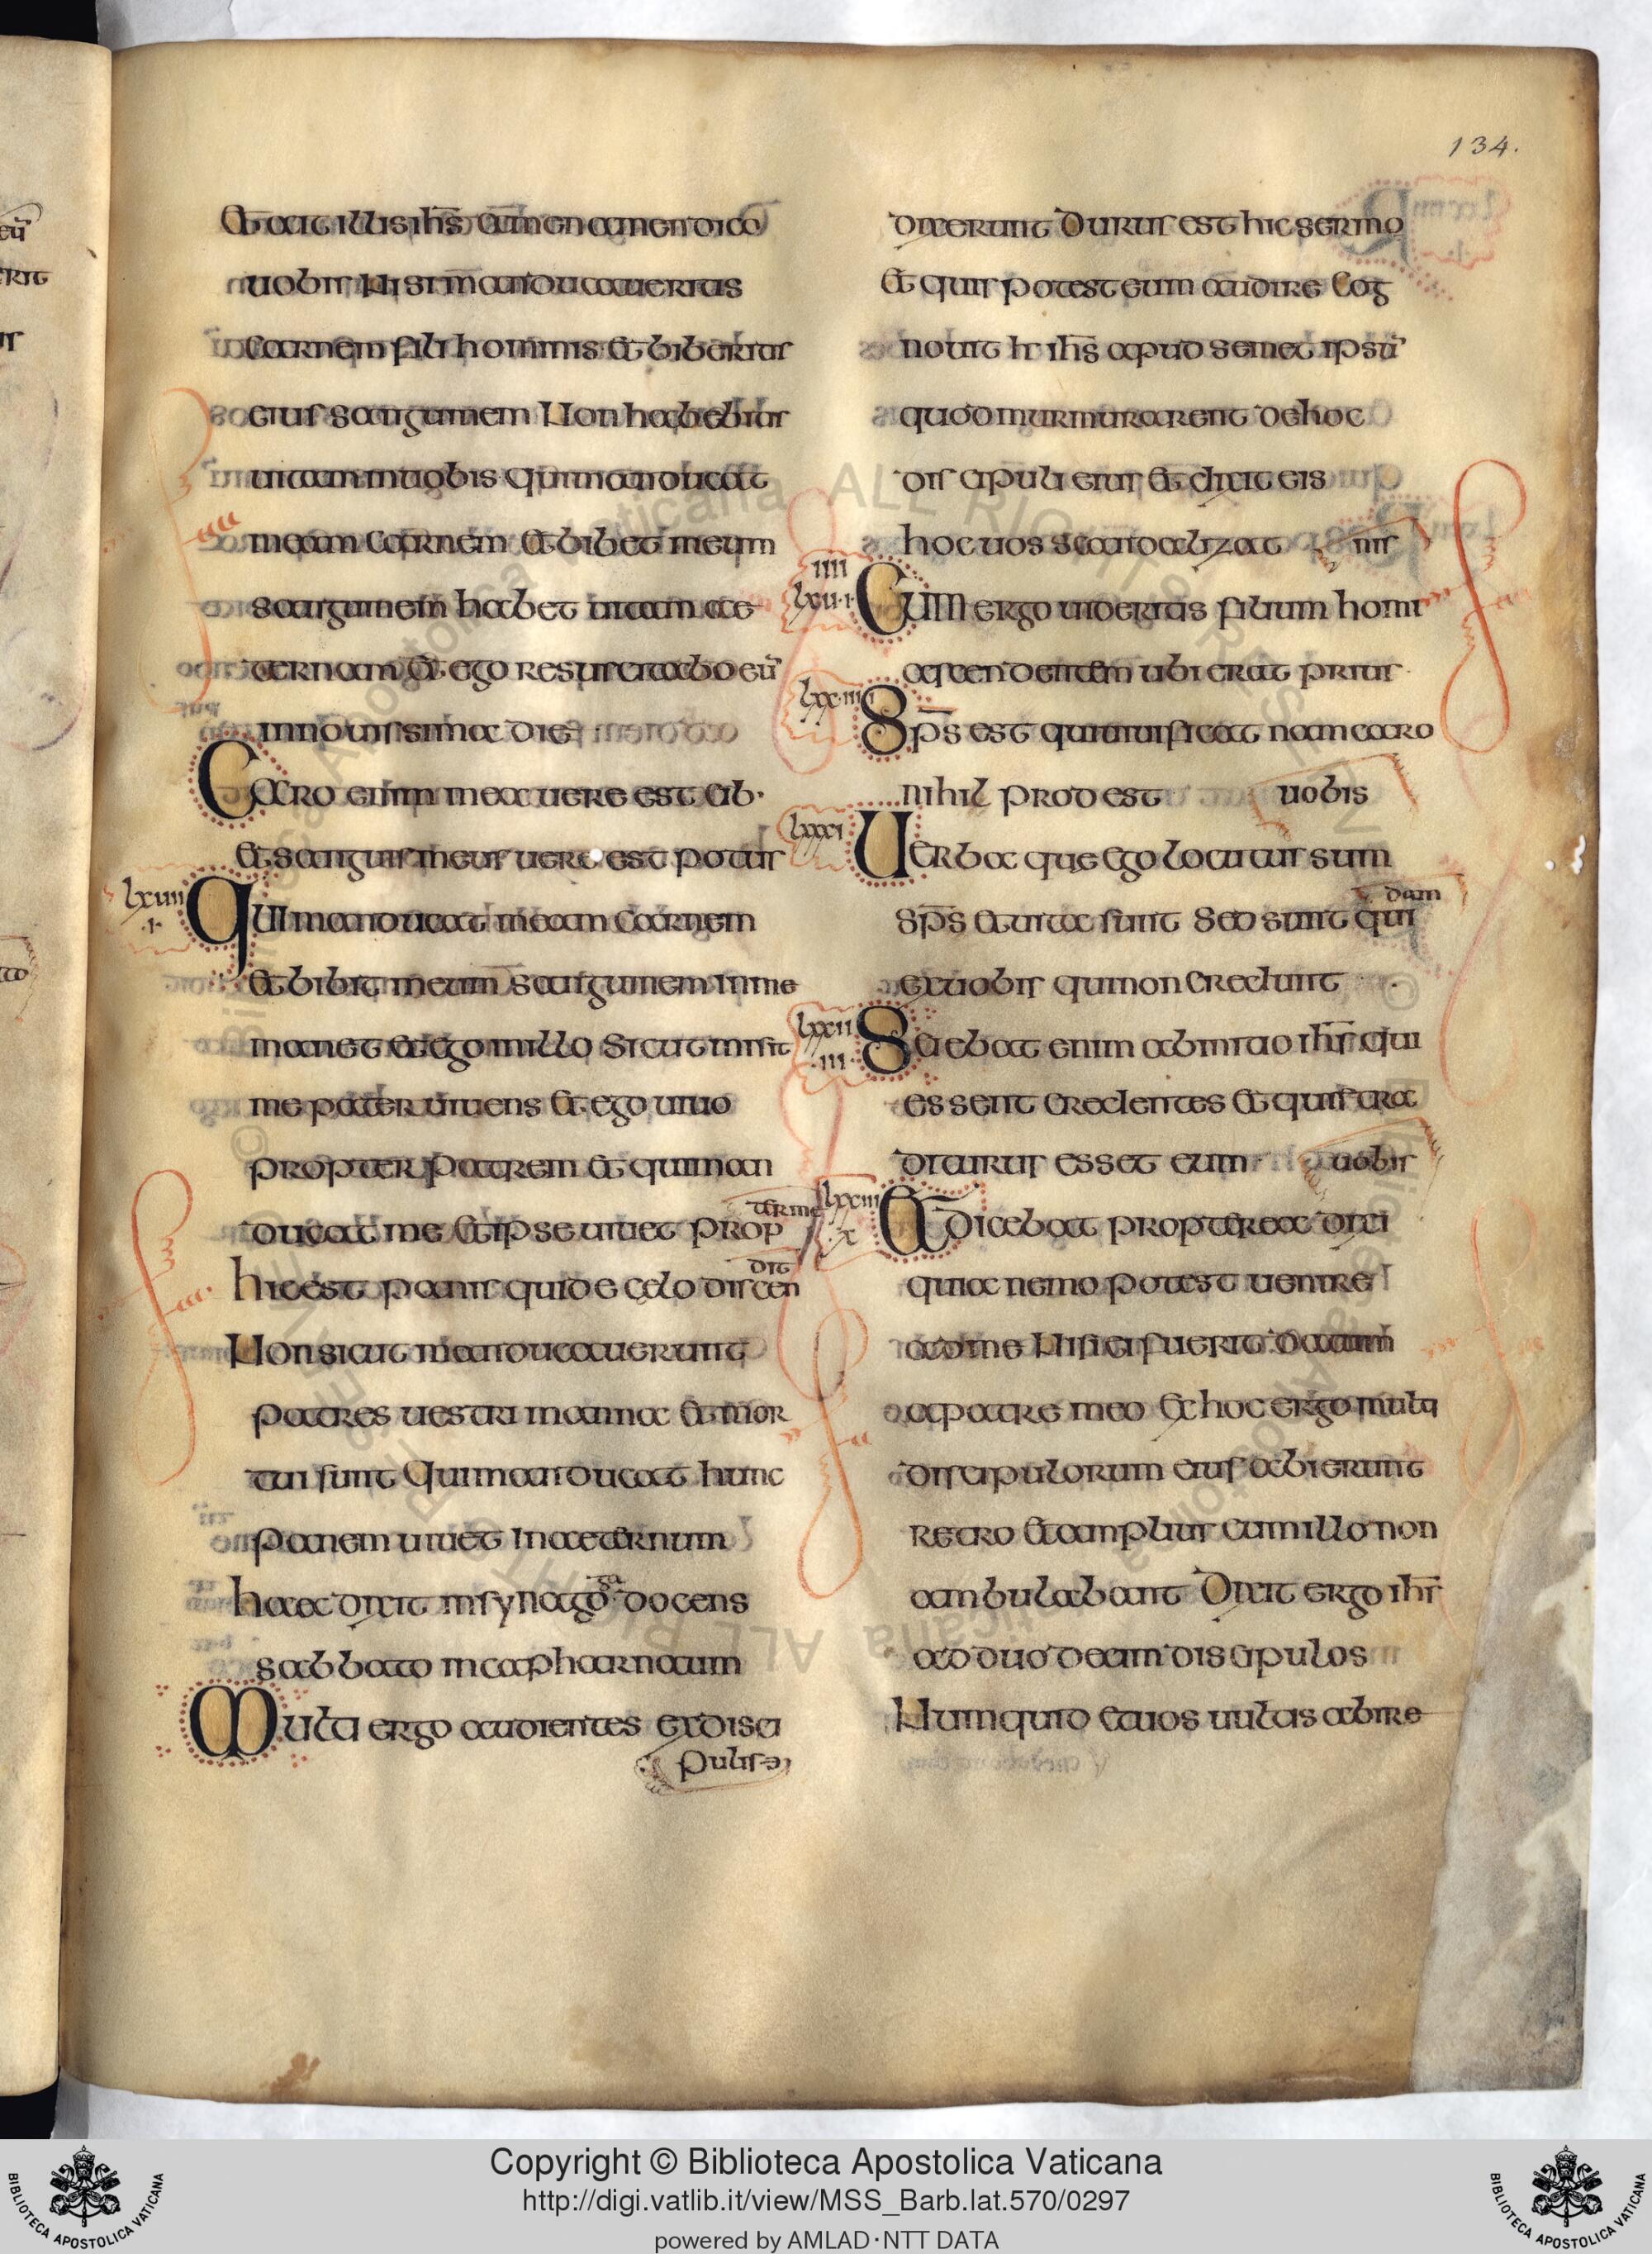 134.
Et ait illis ihs̄ Amen amen dico
uobis Nisi manducaueritis
carnem fili hominis et biberitis
eius sanguinem Non habebitis
uitam in uobis qui manducat
meam carnem et bibet meum
sanguinem habet uitam ae
ternam et ego resuscitabo eū
in nouissima die
Caro enim mea uere est cib·
et sanguis meus uere est potus
lxuiii
·i·
Qui manducat meam carnem
et bibit meum sanguinem in me
manet et ego in illo Sicut misit
me pater uiuens et ego uiuo
propter patrem et qui man
ducat me et ipse uiuet prop
ter me
hic est panis qui de celo discen
dit
Non sicut manducauerunt
patres uestri manna et mor
tui sunt Qui manducat hunc
panem uiuet in aeternum
haec dixit in synagoga docens
sabbato in capharnaum
Multi ergo audientes ex disci
pulis e
dixerunt Durus est hic sermo
Et quis potest eum audire Cog
nouit h ihs̄ apud semet ipsū
quod murmurarent de hoc
discipuli eius et dixit eis
hoc uos scandalizat
nis
Cum ergo uideritis filium homi
ascendentem ubi erat prius
Sp̄s est qui uiuificat nam caro
nihil prodest
uobis
lxxi
Uerba que ego locutus sum
sp̄s et uita sunt Sed sunt qui
dam
ex uobis qui non credunt
lxxii
·iii·
Sciebat enim ab initio ihs̄ qui
essent credentes et quis tra
diturus esset eum
uobis
lxxiii
·x·
Et dicebat propterea dixi
quia nemo potest uenire
ad me Nisi ei fuerit datum
a patre meo Ex hoc ergo multi
discipulorum eius abierunt
retro et amplius cum illo non
ambulabant Dixit ergo ihs̄
ad duodecim discipulos
Numquid et uos uultis abire
Copyright © Biblioteca Apostolica Vaticana
http://digi.vatlib.it/view/MSS_Barb.lat.570/0297
powered by AMLAD·NTT DATA
BIBLIOTECA APOSTOLICA VATICANA
BIBLIOTECA APOSTOLICA VATICANA